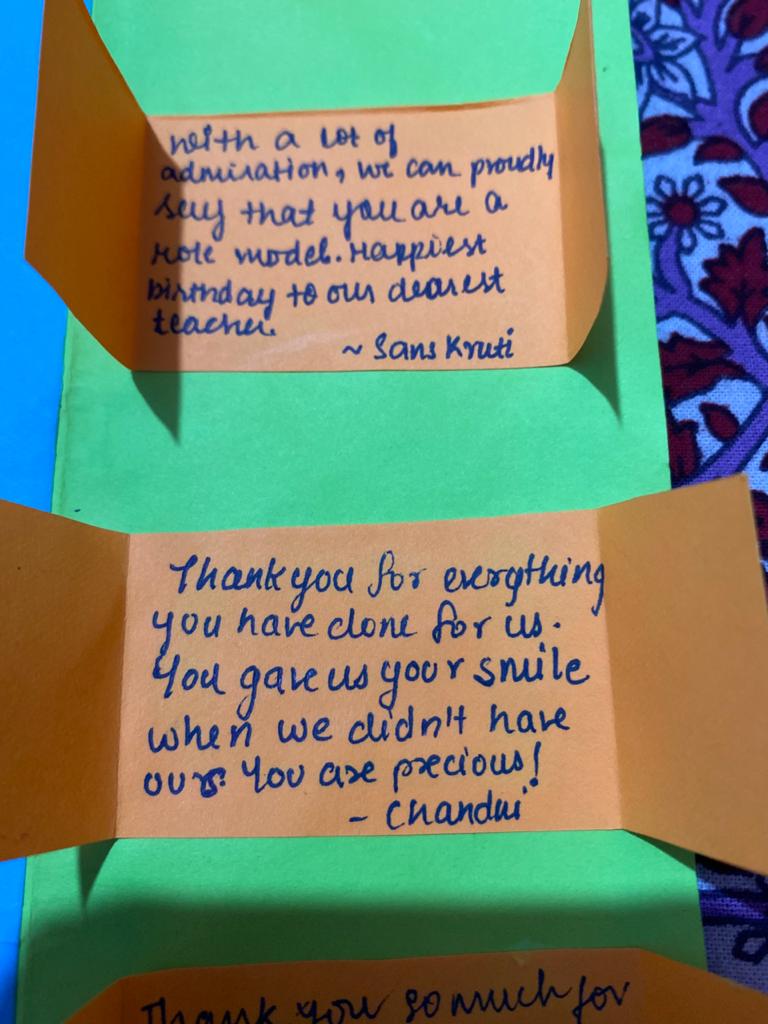 With a lot of
admiration, we can proudly
say that you are a
role model. Happiest
birthday to our dearest
teacher.
~ Sanskruti
Thank you for everything
you have done for us.
You gave us your smile
when we didn't have
ours. You are precious!
- Chandni
Thank you so much for